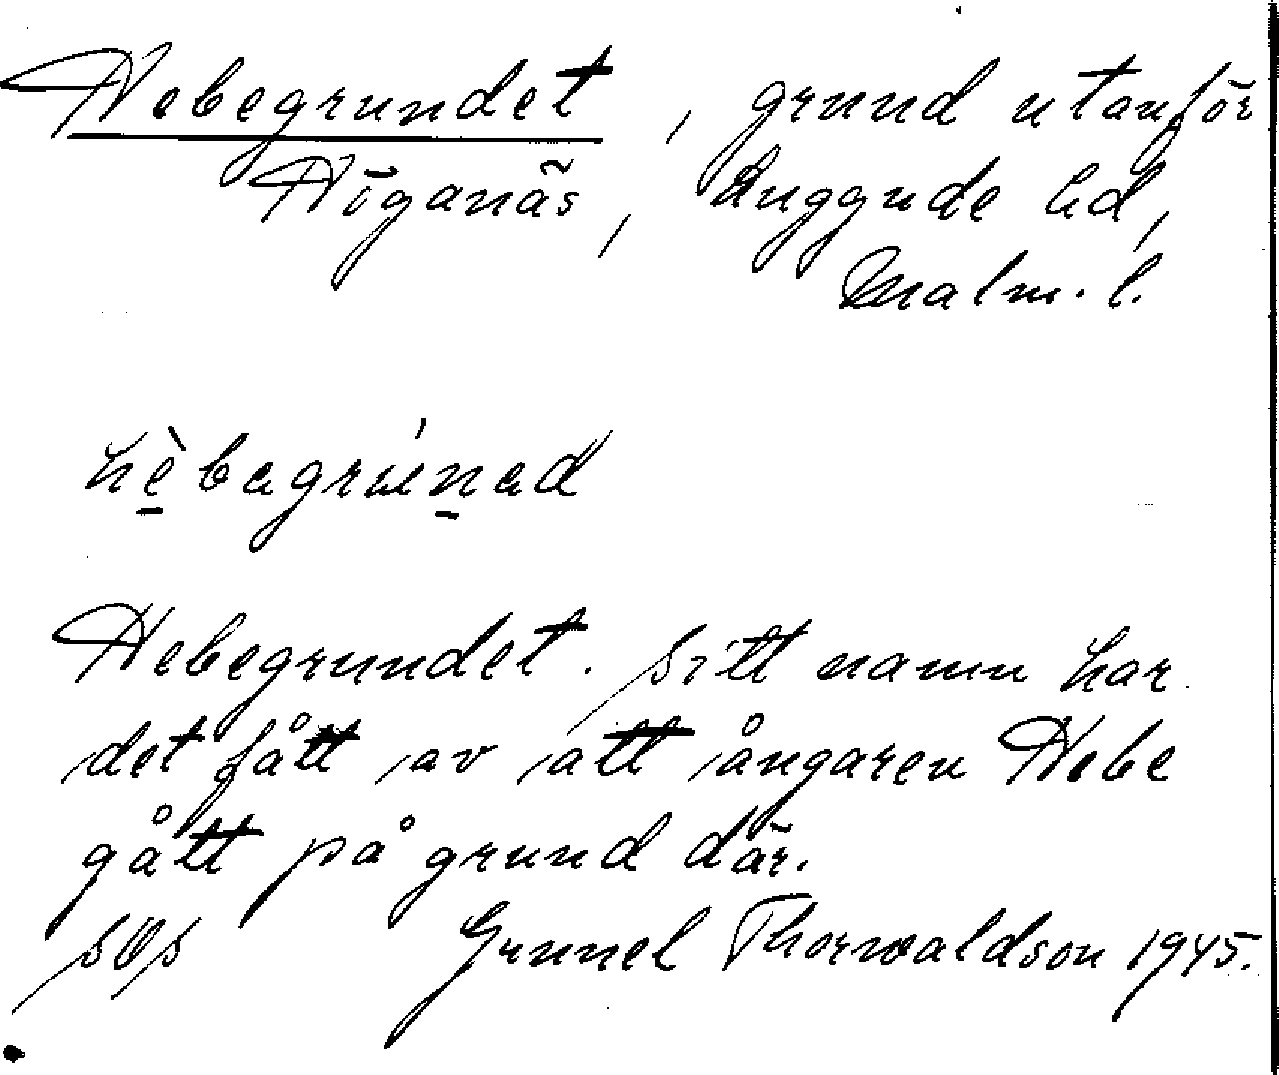 Hebegrundet, grund utanför
Höganäs, Luggude hd,
Malm. l.
hèbagrúnad
Hebegrundet. Sitt namn har
det fått av att ångaren Hebe
gått på grund där.
Gunnel Thorwaldson 1945.